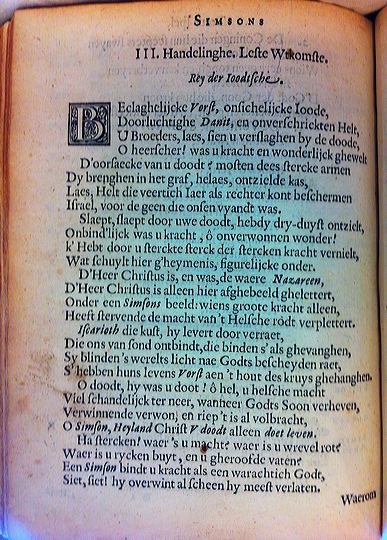 SIMSONS
III. Handelinghe. Leste Wtkomste.
Rey der Ioodtsche.
BEclaghelijcke Vorst, onsichelijcke Ioode,
Doorluchtighe Danit, en onverschrickten Helt,
U Broeders, laes, sien u verslaghen by de doode,
O heerscher! was u kracht en wonderlijck ghewelt
D'oorsaecke van u doodt? mosten dees stercke armen
Dy brenghen in het graf, helaes, ontzielde kas,
Laes, Helt die veertich Iaer als rechter kont beschermen
Israel, voor de geen die onsen vyandt was.
Slaept, slaept door uwe doodt, hebdy dry-duyst ontzielt,
Onbind'lijck was u kracht, ô onverwonnen wonder!
k' Hebt door u sterckte sterck der stercken kracht vernielt,
Wat schuylt hier g'heymenis, figurelijcke onder.
D'Heer Christus is, en was, de waere Nazareen,
D'Heer Christus is alleen hier afghebeeld ghelettert,
Onder een Simsons beeld: wiens groote kracht alleen,
Heeft stervende de macht van 't Helsche rôdt verplettert.
Iscarioth die kust, hy levert door verraet,
Die ons van sond ontbindt, die binden s'als ghevanghen,
Sy blinden 's werelts licht nae Godts bescheyden raet,
S'hebben huns levens Vorst aen 't hout des kruys ghehanghen.
O doodt, hy was u doot! ô hel, u helsche macht
Viel schandelijck ter neer, wanheer Godts Soon verheven,
Verwinnende verwon, en riep 't is al volbracht,
O Simson, Heyland Christ V doodt alleen doet leven.
Ha stercken! waer 's u macht? waer is u wrevel rot?
Waer is u rycken buyt, en u gheroofde vaten?
Een Simson bindt u kracht als een warachtich Godt,
Siet, siet! hy overwint al scheen hy meest verlaten.
Waerom